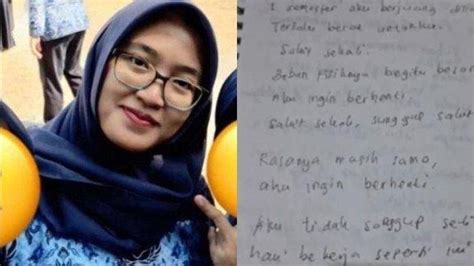 1 semester aku berjuang
Terlalu berat untukku.
Sakit sekali.
Beban Fisiknya begitu besar
Aku ingin berhenti.
Sakit sekali, sungguh sakit
Rasanya masih sama,
aku ingin berhenti.
Aku tidak sanggup
hari bekerja seperti ini